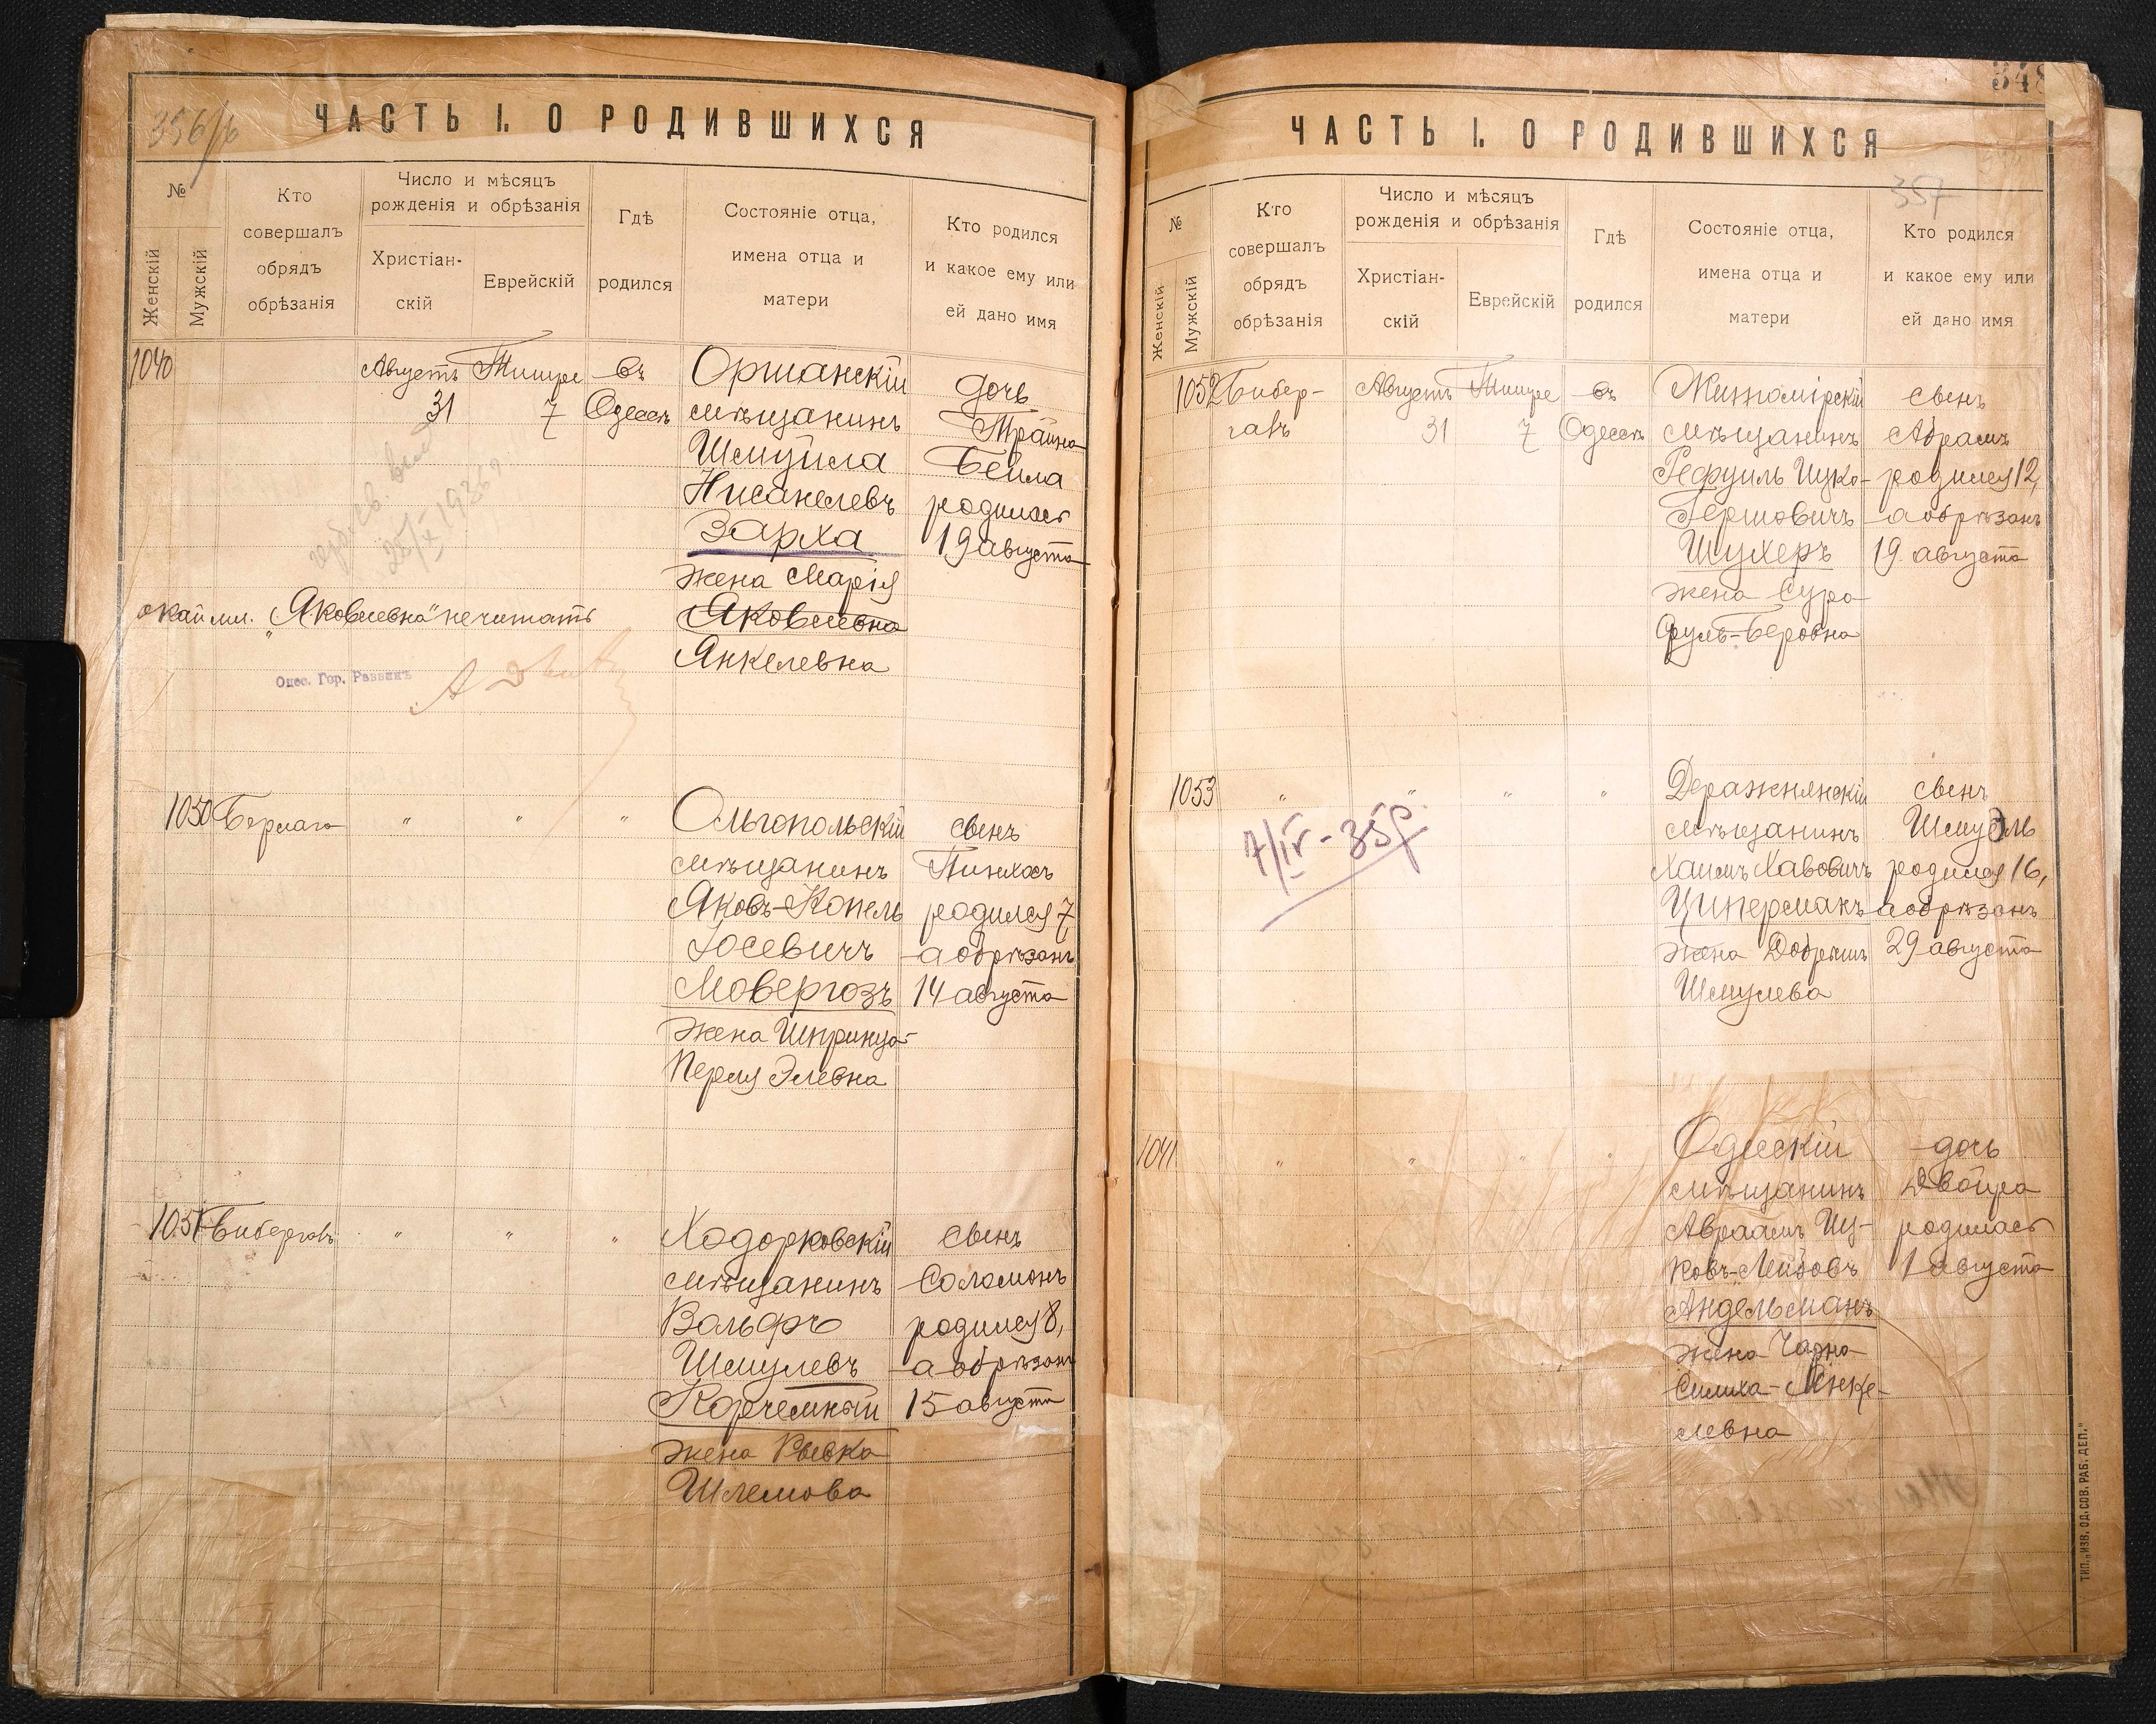 356/б
ЧАСТЬ I. О РОДИВШИХСЯ
№
Женскій
Мужскій
Кто совершалъ обрядъ обрѣзанія
Число и мѣсяцъ рожденія и обрѣзанія
Христіан-
скій
Еврейскій
Гдѣ родился
Состояніе отца,
имена отца и
матери
Кто родился
и какое ему или
ей дано имя
1040
Августъ Тишре въ
31 7 Одессѣ
Оршанскій
мѣщанинъ
Шмуйла
Нисанелевъ
Зарха
жена Марія
Яковлевна
Янкелевна
дочь
Трайна
Бейла
родилась
19 августа
25/X 1936 г.
окаймл. "Яковлевна" не читать
Одес. Гор. Раввинъ
1050 Бермага " " "
Ольгопольскій
мѣщанинъ
Яковъ-Копель
Іосевичъ
Мовергозъ
жена Шпринца-
Перля Элевна
сынъ
Пинхосъ
родился 7,
а обрѣзанъ
14 августа
1051 Бибергалъ " " "
Ходорковскій
мѣщанинъ
Вольфъ
Шмулевъ
Корчемный
жена Рывка
Шлемова
сынъ
Соломонъ
родился 8,
а обрѣзанъ
15 августа
348
ЧАСТЬ I. О РОДИВШИХСЯ
357
№
Женскій
Мужскій
Кто совершалъ обрядъ обрѣзанія
Число и мѣсяцъ рожденія и обрѣзанія
Христіан-
скій
Еврейскій
Гдѣ родился
Состояніе отца,
имена отца и
матери
Кто родился
и какое ему или
ей дано имя
1052 Бибер-
галъ
Августъ Тишре въ
31 7 Одессѣ
Житомірскій
мѣщанинъ
Рефуиль Ицко-
Гершовичъ
Шухеръ
жена Сура-
Фуль-Беровна
сынъ
Абрамъ
родился 12,
а обрѣзанъ
19 августа
1053 " " " "
7/IV - 35 г.
Деражнянскій
мѣщанинъ
Хаимъ Хавовичъ
Циперманъ
жена Добрышъ
Шмулева
сынъ
Шмуэль
родился 16,
а обрѣзанъ
29 августа
1041 " " " "
Одесскій
мѣщанинъ
Авраамъ Иц-
ковъ-Лейбовъ
Андельманъ
жена Чарна
Симиха-Янке-
левна
дочь
Двойра
родилась
1 августа
ТИП. „ИЗВ. ОД. СОВ. РАБ. ДЕП."